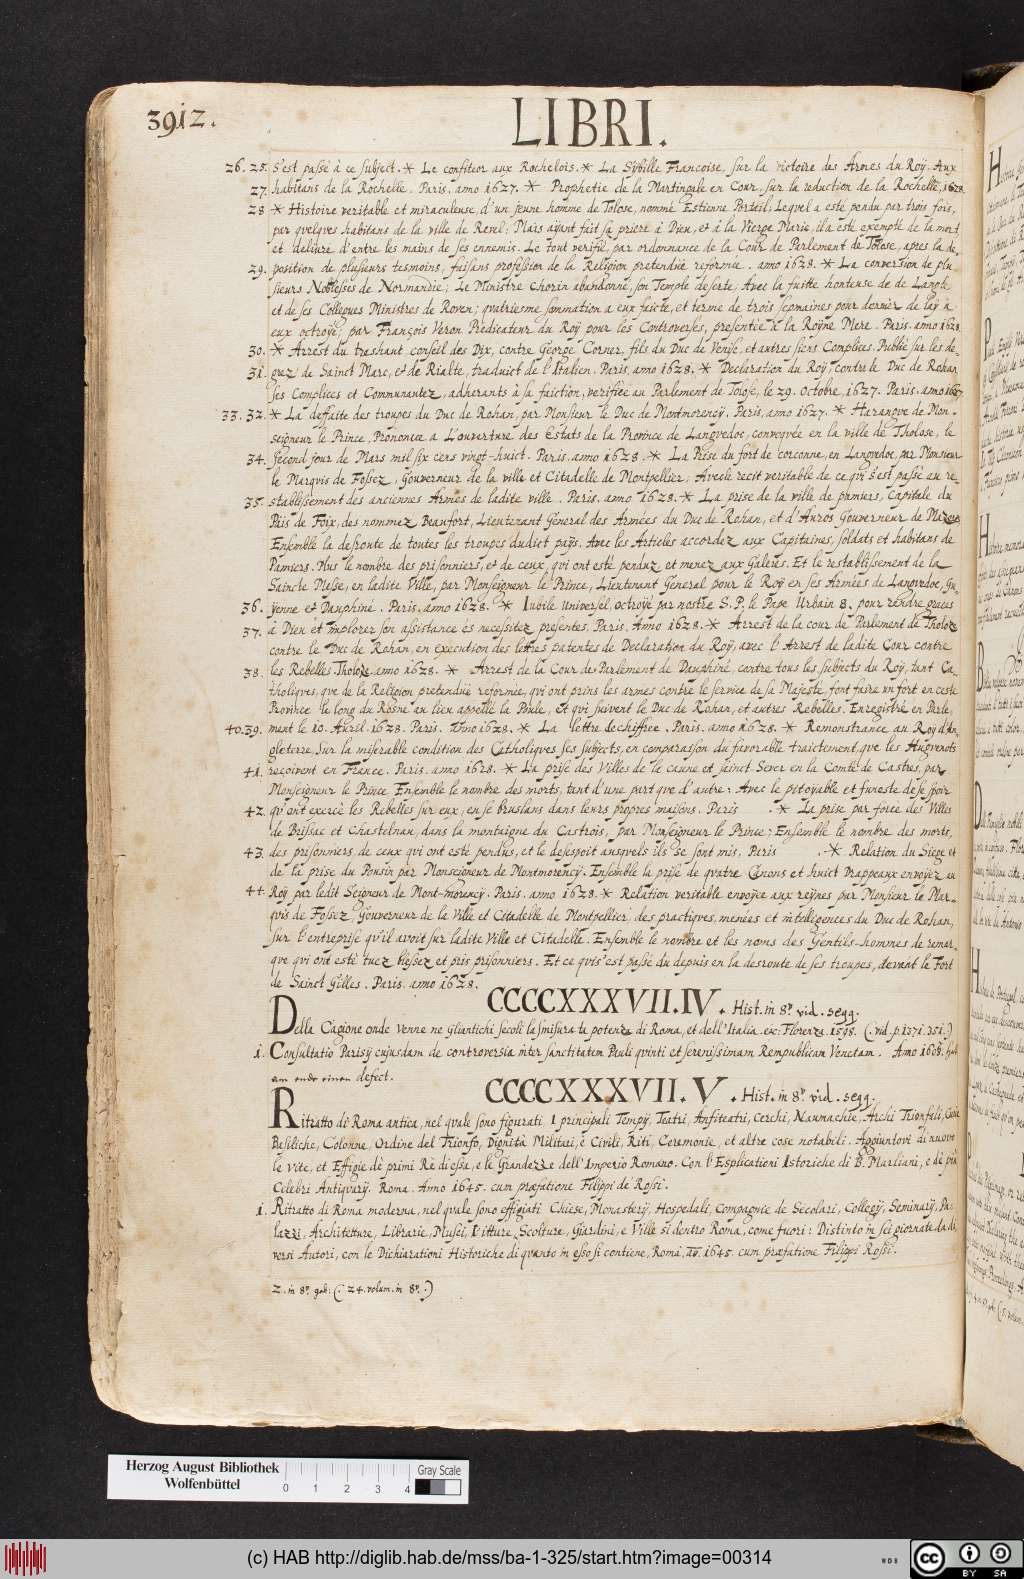 3912.
LIBRI.
26. 25. S'est passé à ce subject. * Le confiteor aux Rochelois. * La Sybille Francoise, sur la victoire des Armes du Roy. Aux
27. habitans de la Rochelle. Paris. anno 1627. * Prophetie de la Martingale en Cour, sur la reduction de la Rochelle, 1628
28 * Histoire veritable et miraculeuse, d'un jeune homme de Tolose, nommé Estienne Porteil; Lequel a esté pendu par trois fois,
par quelques habitans de la ville de Reml: Mais ayant fait sa priere à Dieu, et à la Vierge Marie, il a esté exempté de la mort
et delivré d'entre les mains de ses ennemis. Le tout verifié, par ordonnance de la Cour de Parlement de Tolose, apres la de-
29. position de plusieurs tesmoins, faisans profession de la Religion pretenduë reformée. anno 1628. * La conversion de plu-
sieurs Noblesses de Normandie; Le Ministre Chorin abandonné, son Temple deserté, Avec la fuitte honteuse de de Langle
et de ses Collegues Ministres de Roven; quatriesme sommation a eux faicte, et terme de trois sepmaines pour dernier delay à
eux octroyé; par François Veron Predicateur du Roy pour les Controverses, presentée à la Royne Mere. Paris. anno 1628.
30. * Arrest du trashant conseil des Dix, contre George Corner, fils du Duc de Venise, et autres siens Complices. Publié sur les de-
31. grez de Sainct Marc, et de Rialte, traduict de l'Italien. Paris. anno 1628. * Declaration du Roy contre le Duc de Rohan
ses Complices et Communautez, adherants à sa faiction, verifiée au Parlement de Tolose, le 29. Octobre, 1627. Paris. anno 1627.
33. 32. * La deffaite des troupes du Duc de Rohan, par Monsieur le Duc de Montmorency. Paris, anno 1627. * Harangue de Mon-
seigneur le Prince, Prononcée a L'ouverture des Estats de la Province de Languedoc, convoquée en la ville de Tholose, le
34. second jour de Mars mil six cens vingt-huict. Paris. anno 1628. * La Prise du fort de corconne, en Languedoc, par Monsieur
le Marquis de Fossez, Gouverneur de la ville et Citadelle de Montpellier: Avec le recit veritable de ce qui s'est passé au re-
35. stablissement des anciennes Armes de ladite ville. Paris. anno 1628. * La prise de la ville de pamiers, Capitale du
Païs de Foix, des nommez Beaufort, Lieutenant General des Armées du Duc de Rohan, et d'Auros Gouverneur de Mazeres
Ensemble la desroute de toutes les troupes dudict pays. Avec les Articles accordez aux Capitaines, soldats et habitans de
Pamiers. Plus le nombre des prisonniers, et de ceux, qui ont esté penduz et menez aux Galeres. Et le restablissement de la
Saincte Messe, en ladite Ville, par Monseigneur le Prince, Lieutenant General pour le Roy en ses Armées de Languedoc, Gu-
36. yenne et Dauphiné. Paris. anno 1628. * Iubilé Universel, octroyé par nostre S. P. le Pape Urbain 8. pour rendre graces
37. à Dieu et implorer son assistance és necessitez presentes. Paris. Anno 1628. * Arrest de la cour de Parlement de Tholoze
contre le Duc de Rohan, en execution des lettres patentes de Declaration du Roy, avec l'Arrest de ladite Cour contre
38. les Rebelles. Tholoze. anno 1628. * Arrest de la Cour de Parlement de Dauphiné, contre tous les subjects du Roy, tant Ca-
tholiques, que de la Religion pretenduë reformée, qui ont prins les armes contre le service de sa Majesté, font faire un fort en ceste
Province le long du Rosne au lieu appellé la Poule, et qui suivent le Duc de Rohan, et autres Rebelles. Enregistré en Parle-
40. 39. ment le 10. Auril. 1628. Paris. Anno 1628. * La lettre dechiffrée. Paris. anno 1628. * Remonstrance au Roy d'An-
gleterre, Sur la miserable condition des Catholiques ses subjects, en comparaison du favorable traictement, que les Hugvenots
41. reçoivent en France. Paris. anno 1628. * La prise des Villes de la caune et sainct Sever en la Comté de Castres, par
Monseigneur le Prince. Ensemble le nombre des morts, tant d'une part que d'autre: Avec le pitoyable et funeste desespoir
42. qu'ont exercé les Rebelles sur eux, en se bruslans dans leurs propres maisons. Paris . * La prise par force des Villes
de Brissac et Chastelnau, dans la montaigne du Castrois, par Monseigneur le Prince; Ensemble le nombre des morts,
43. des prisonniers, de ceux qui ont esté pendus, et le desespoir ausquels ils se sont mis, Paris . * Relation du Siege et
de la prise du Pousin par Monseigneur de Montmorency. Ensemble la prise de quatre Canons et huict Drappeaux envoyez au
44. Roy par ledit Seigneur de Mont-morency. Paris. anno 1628. * Relation veritable envoyée aux reynes par Monsieur le Mar-
quis de Fossez, Gouverneur de la Ville et Citadelle de Montpellier, des practiques, menées et intelligences du Duc de Rohan,
sur l'entreprise qu'il avoit sur ladite Ville et Citadelle. Ensemble le nombre et les noms des Gentils-hommes de remar-
que qui ont esté tuez, blessez et pris prisonniers. Et ce qui s'est passé du depuis en la desroute de ses troupes, devant le Fort
de Sainct Gilles. Paris. anno 1628.
CCCCXXXVII.IV. Hist. in 8º. vid. segg.
Della Cagione onde venne ne gliantichi secoli la smisurata potenza di Roma, et dell'Italia. eic: Florenza. 1598. (. vid. p. 1371. 351.)
1. Consultatio Parisij cujusdam de controversia inter sanctitatem Pauli quinti et serenissimam Rempublicam Venetam. Anno 1606.
defect.
CCCCXXXVII.V. Hist. in 8º. vid. segg.
Ritratto di Roma antica, nel quale sono figurati I principali Tempij, Teatri, Anfiteatri, Cerchi, Naumachie, Archi Trionfali, Curie
Basiliche, Colonne, Ordine del Trionfo, Dignità Militari, e Civili, Riti, Ceremonie, et altre cose notabili. Aggiuntovi di nuovo
le vite, et Effigie de primi Rè di essa, e le Grandezze dell'Imperio Romano. Con l'Esplicationi Istoriche di B. Marliani, e de più
Celebri Antiquarij. Roma. Anno 1645. cum præfatione Filippi de Rossi.
1. Ritratto di Roma moderna, nel quale sono effigiati Chiese, Monasterij, Hospedali, Compagnie de Secolari, Collegij, Seminarij, Pa-
lazzi, Architetture, Librarie, Musei, Pitture, Scolture, Giardini, e Ville si dentro Roma, come fuori: Distinto in sei giornate da di-
versi Autori, con le Dichiarationi Historiche di quanto in esso si contiene, Roma, aõ. 1645. cum præfatione Filippi Rossi.
2. in 8º. geb: (. 24. volum. in 8º.)
Herzog August Bibliothek
Wolfenbüttel
0 1 2 3 4
Gray Scale
(c) HAB http://diglib.hab.de/mss/ba-1-325/start.htm?image=00314
WDB
cc BY SA